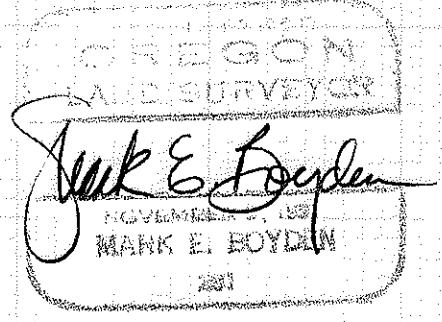 OREGON
LAND SURVEYOR
Mark E Boyden
NOVEMBER
MARK E. BOYDEN